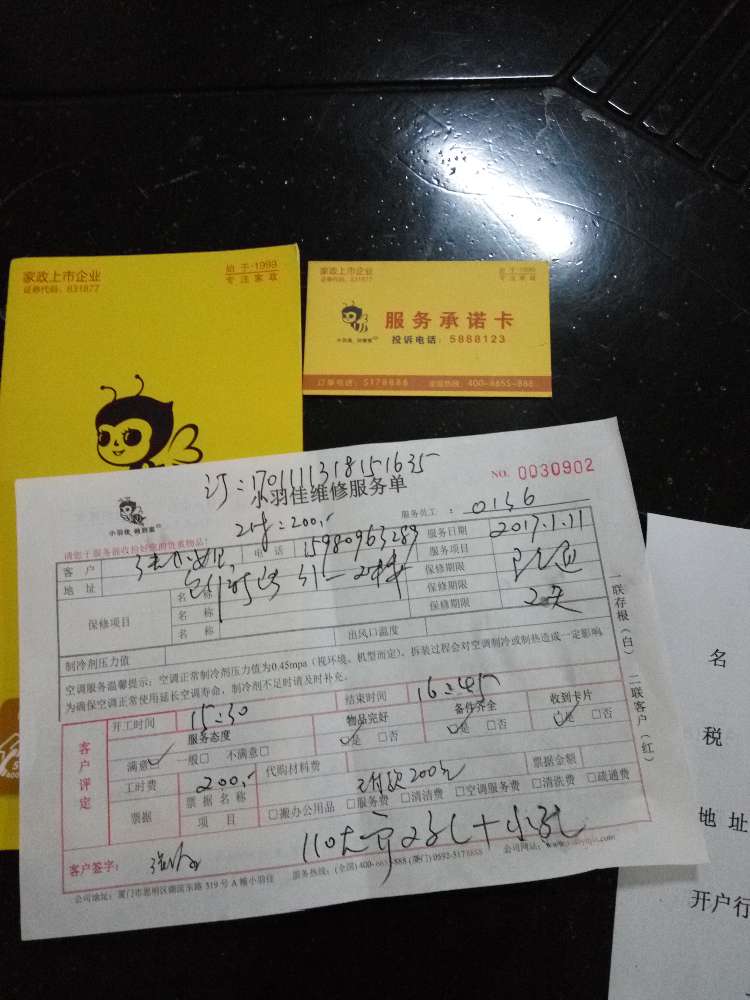 家政上市企业
证券代码：831877
始于·1999
专注家政
家政上市企业
证券代码：831877
始于·1999
专注家政
服务承诺卡
投诉电话：5888123
订单电话：5178888
全国热线：400-6655-888
订：1701111318151635
小羽佳维修服务单
NO. 0030902
小羽佳 特别家
工时=200,-
服务员工：0136
请您于服务前收拾好您的贵重物品！
客户
电话 15980963289
服务日期 2017.1.11
地址
服务项目
保修项目
名称
保修期限
名称
保修期限
名称
保修期限 2天
制冷剂压力值
出风口温度
空调服务温馨提示：空调正常制冷剂压力值为0.45mpa（视环境、机型而定）。拆装过程会对空调制冷或制热造成一定影响
为确保空调正常使用延长空调寿命，制冷剂不足时请及时补充。
一联存根（白） 二联客户（红）
客户评定
开工时间 15:30
结束时间 16:45
服务态度
物品完好
备件齐全
收到卡片
满意☑ 一般□ 不满意□
☑是 □否
☑是 □否
☑是 □否
工时费 200,-
代购材料费
已付款200元
票据金额
票据
票据名称
项目
□搬办公用品 □服务费 □清洁费 □空调服务费 □清洗费 □疏通费
客户签字：
服务热线：(全国) 400-6655-888 (厦门) 0592-5178888
公司网站：
公司地址：厦门市思明区湖滨东路319号A幢小羽佳
名
税
地址
开户行